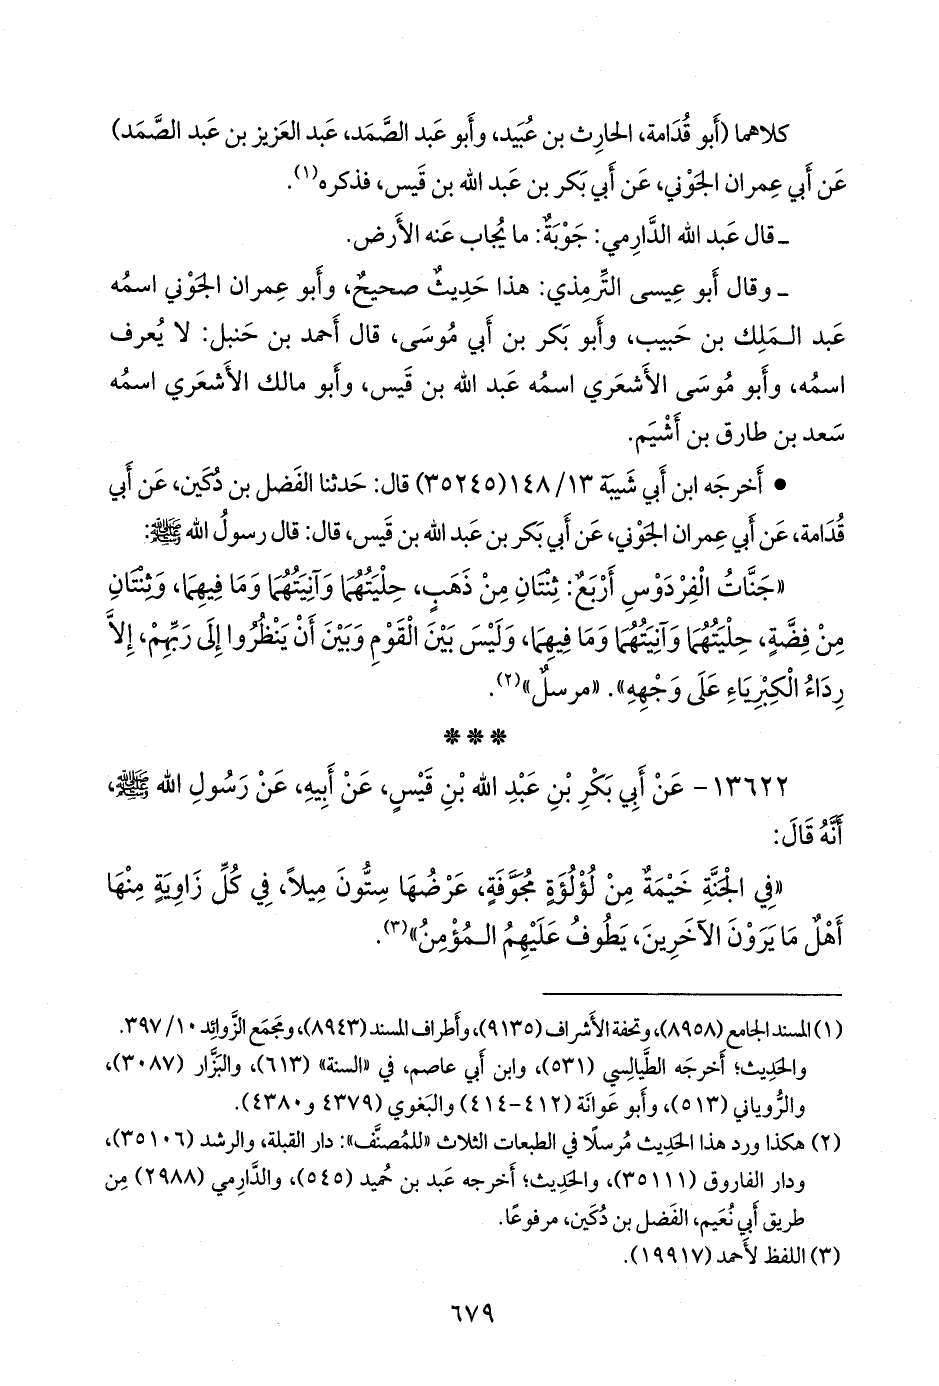 كلاهما (أَبو قُدَامة، الحارِث بن عُبَيد، وأَبو عَبد الصَّمَد، عَبد العَزيز بن عَبد الصَّمَد)
عَن أَبي عِمران الجَوْني، عَن أَبي بَكر بن عَبد الله بن قَيس، فذكره(١).
ـ قال عَبد الله الدَّارِمي: جَوْبَةٌ: ما يُجاب عَنه الأَرض.
ـ وقال أَبو عِيسى التِّرمِذي: هذا حَدِيثٌ صحيحٌ، وأَبو عِمران الجَوْني اسمُه
عَبد الـمَلِك بن حَبيب، وأَبو بَكر بن أَبي مُوسَى، قال أَحمد بن حَنبل: لا يُعرف
اسمُه، وأَبو مُوسَى الأَشعَري اسمُه عَبد الله بن قَيس، وأَبو مالك الأَشعَري اسمُه
سَعد بن طارق بن أَشْيَم.
• أَخرجَه ابن أَبي شَيبَة ١٣/ ١٤٨(٣٥٢٤٥) قال: حَدثنا الفَضل بن دُكَين، عَن أَبي
قُدَامة، عَن أَبي عِمران الجَوْني، عَن أَبي بَكر بن عَبد الله بن قَيس، قال: قال رسولُ الله ﷺ:
«جَنَّاتُ الْفِرْدَوْسِ أَرْبَعٌ: ثِنْتَانِ مِنْ ذَهَبٍ، حِلْيَتُهُمَا وَآنِيَتُهُمَا وَمَا فِيهِمَا، وَثِنْتَانِ
مِنْ فِضَّةٍ، حِلْيَتُهُمَا وَآنِيَتُهُمَا وَمَا فِيهِمَا، وَلَيْسَ بَيْنَ الْقَوْمِ وَبَيْنَ أَنْ يَنْظُرُوا إِلَى رَبِّهِمْ، إِلاَّ
رِدَاءُ الْكِبْرِيَاءِ عَلَى وَجْهِهِ». «مرسلٌ»(٢).
***
١٣٦٢٢- عَنْ أَبِي بَكْرِ بْنِ عَبْدِ الله بْنِ قَيْسٍ، عَنْ أَبِيهِ، عَنْ رَسُولِ الله ﷺ،
أَنَّهُ قَالَ:
«فِي الْجَنَّةِ خَيْمَةٌ مِنْ لُؤْلُؤَةٍ مُجَوَّفَةٍ، عَرْضُهَا سِتُّونَ مِيلاً، فِي كُلِّ زَاوِيَةٍ مِنْهَا
أَهْلٌ مَا يَرَوْنَ الآخَرِينَ، يَطُوفُ عَلَيْهِمُ الـمُؤْمِنُ»(٣).
(١) المسند الجامع (٨٩٥٨)، وتحفة الأَشراف (٩١٣٥)، وأَطراف المسند (٨٩٤٣)، ومَجمَع الزَّوائِد ١٠/ ٣٩٧.
والحَدِيث؛ أَخرجَه الطَّيالِسي (٥٣١)، وابن أَبي عاصم، في «السنة» (٦١٣)، والبَزَّار (٣٠٨٧)،
والرُّوياني (٥١٣)، وأَبو عَوانَة (٤١٢-٤١٤) والبَغوي (٤٣٧٩ و٤٣٨٠).
(٢) هكذا ورد هذا الحَدِيث مُرسلًا في الطبعات الثلاث «للمُصنَّف»: دار القبلة، والرشد (٣٥١٠٦)،
ودار الفاروق (٣٥١١١)، والحَدِيث؛ أَخرجه عَبد بن حُميد (٥٤٥)، والدَّارِمي (٢٩٨٨) مِن
طريق أَبي نُعَيم، الفَضل بن دُكَين، مرفوعًا.
(٣) اللفظ لأَحمد (١٩٩١٧).
٦٧٩